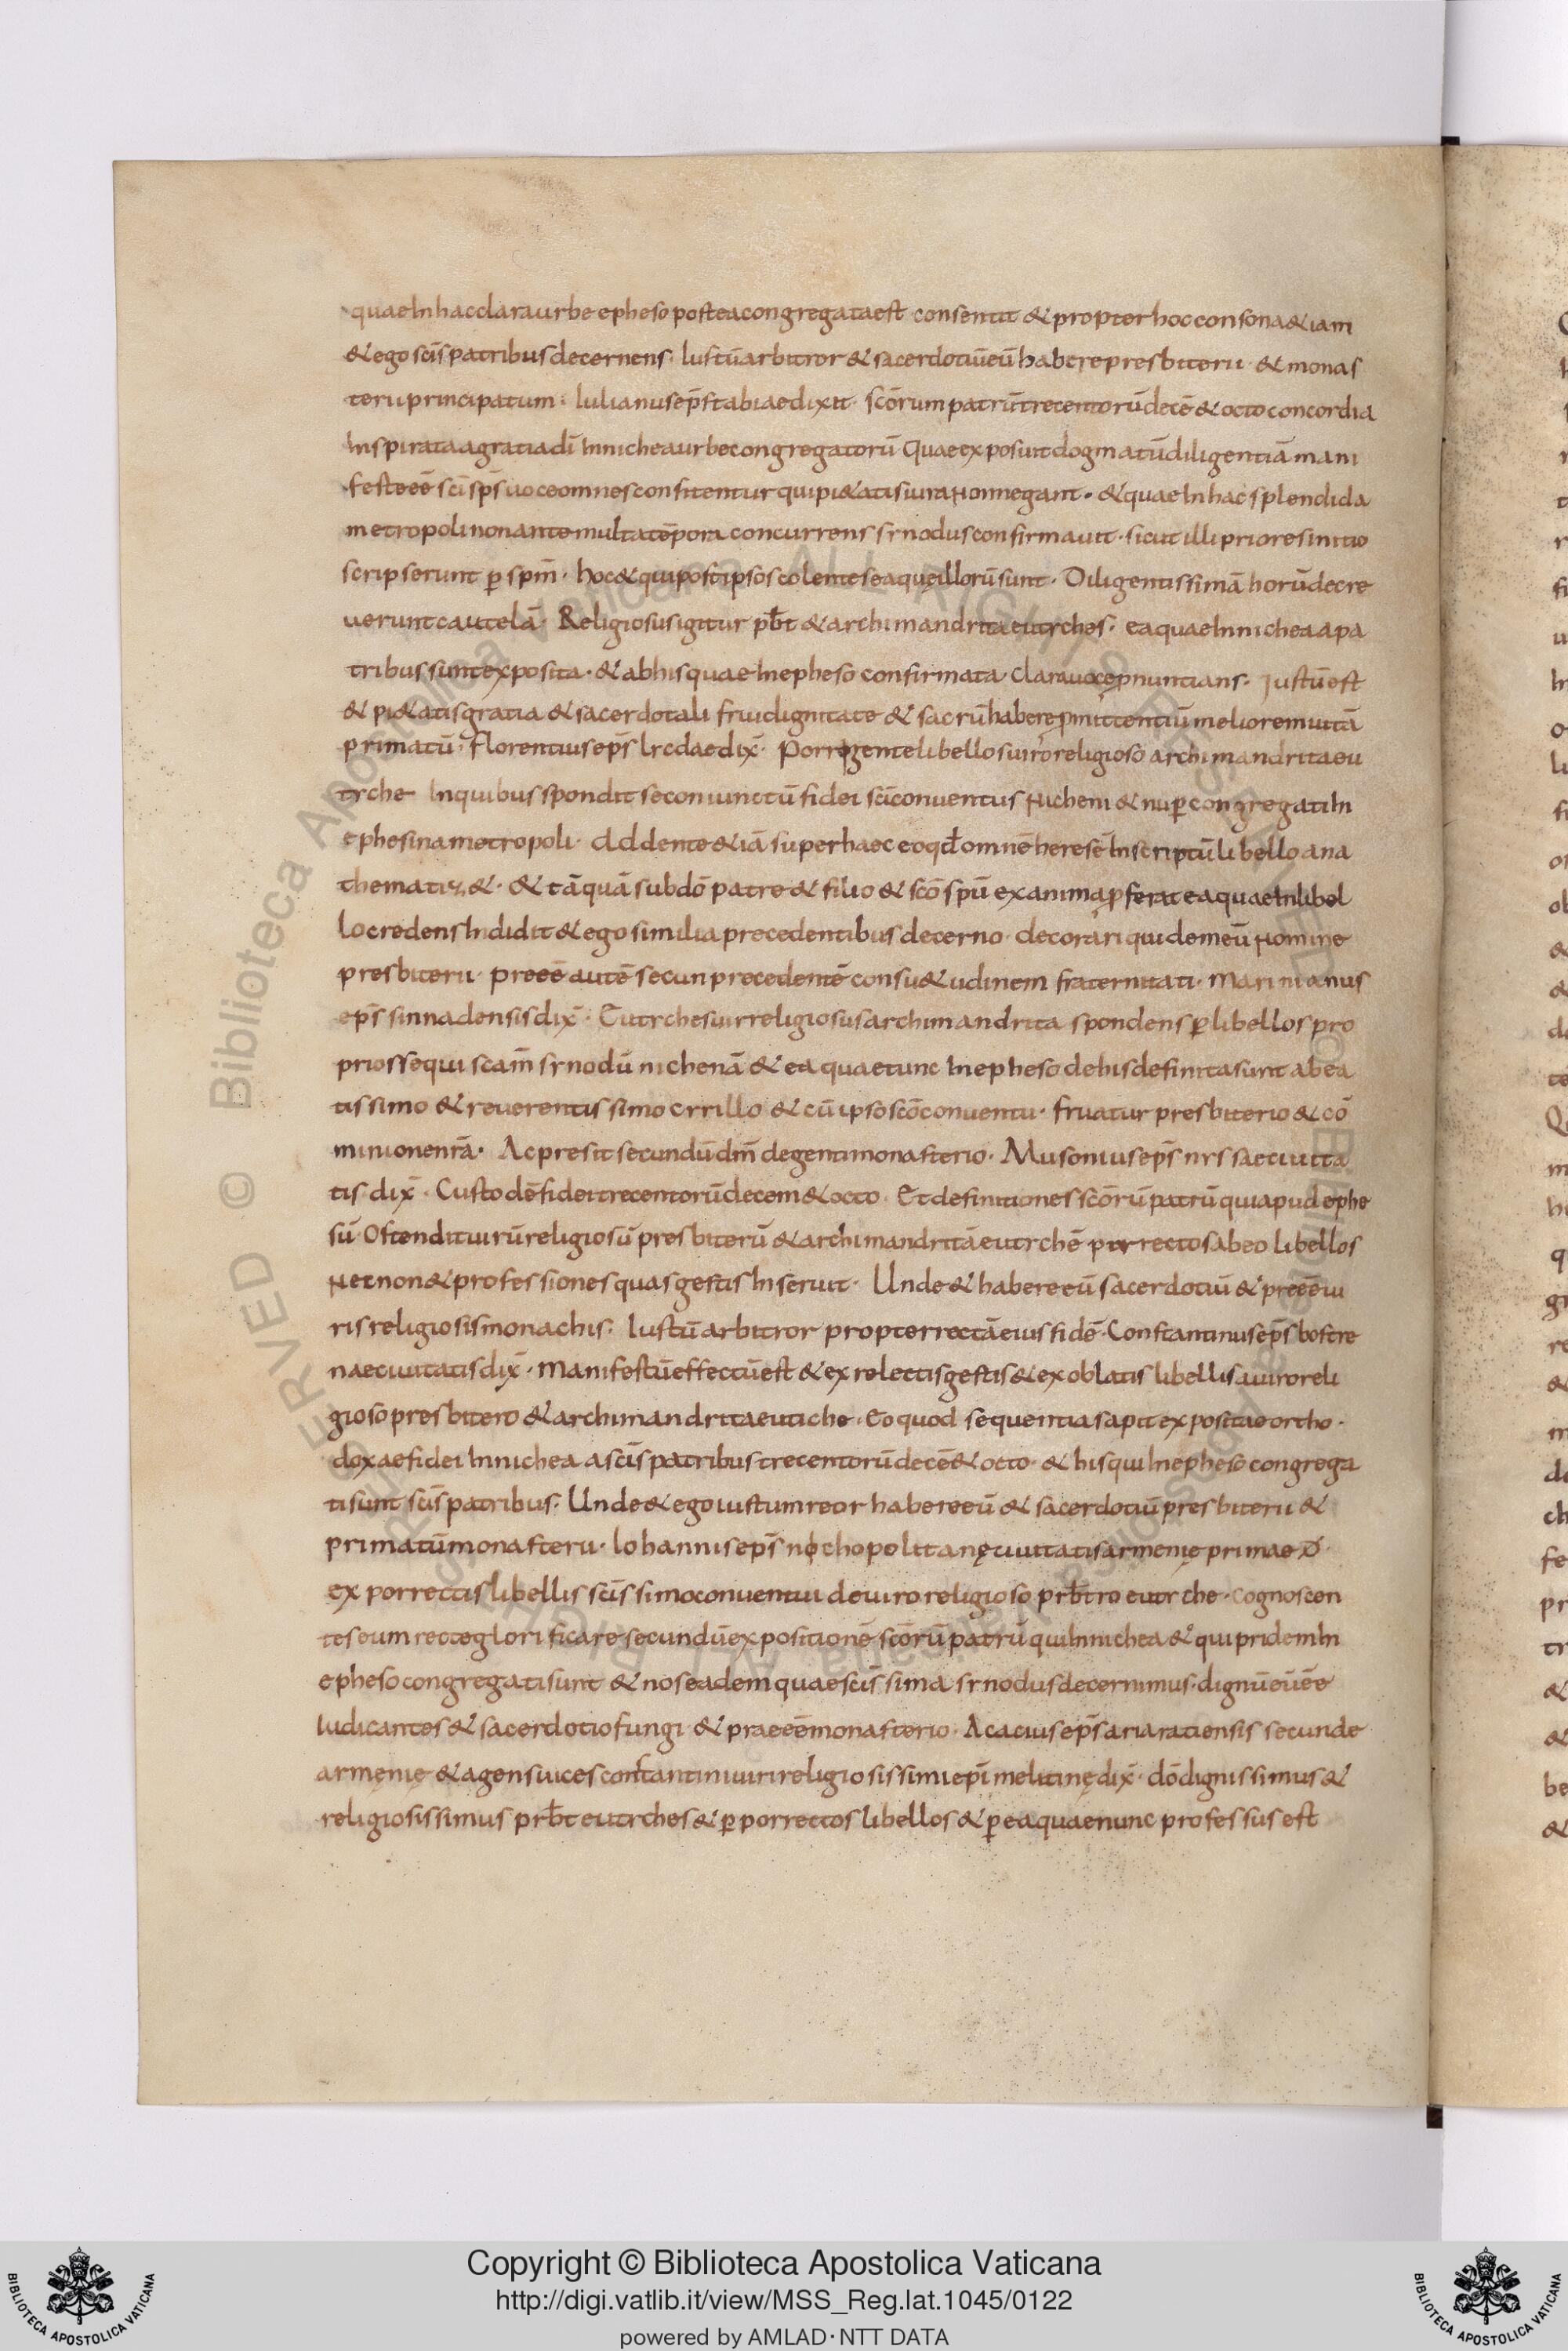 quae In hac clara urbe epheso postea congregata est consentit & propter hoc consona &iam
& ego scīs patribus decernens. Iustū arbitror & sacerdotiū eū habere presbiterii & monas
terii principatum. Iulianus ep̄s tabiae dixit. scōrum patrū trecentorū decē & octo concordia
Inspirata a gratia dī In nichea urbe congregatorū Quae exposuit dogmatū diligentiā mani
feste eē scī sp̄s uoce omnes confitentur qui pi&atis iura Non negant. & quae In hac splendida
metropoli non ante multa tēpora concurrens synodus confirmauit. sicut illi priores initio
scripserunt ꝑ spm̄. hoc & qui post ipsos colentes ea quę illorū sunt. Diligentissimā horū decre
uerunt cautelā. Religiosus igitur pb̄t & archimandrita eutyches. ea quae In nichea a pa
tribus sunt exposita. & ab his quae In epheso confirmata clara uoce pnuntians. Iustū est
& pi&atis gratia & sacerdotali frui dignitate & sacrū habere ꝑmittentiū meliorem uitā
primatū. Florentius ep̄s lydae dix̄. Porrigente libellos uiro religioso archimandrita eu
tyche In quibus spondit se coniunctū fidei scī conuentus Nicheni & nuꝑ congregati In
ephesina metropoli. Addente &iā super haec eo qd̄ omnē heresē In scriptū libello ana
thematiz&. & tāquā sub dō patre & filio & scō spū ex anima ꝓferat ea quae In libel
lo credens Indidit & ego similia precedentibus decerno. decorari quidem eū Nomine
presbiterii. preeē autē secun precedentē consu&udinem fraternitati. Marinianus
ep̄s sinnadensis dix̄. Eutyches uir religiosus archimandrita spondens ꝑ libellos pro
prios sequi scam̄ synodū nichenā & ea quae tunc In epheso de his definita sunt a bea
tissimo & reuerentissimo cyrillo & cū ipso scō conuentu. fruatur presbiterio & cō
minione nr̄ā. Ac presit secundū dm̄ degenti monasterio. Musonius ep̄s nyssae ciuita
tis dix̄. Custodē fidei trecentorū decem & octo. Et definitiones scōrū patrū qui apud ephe
sū. Ostendit uirū religiosū presbiterū & archimandritā eutychē porrectos ab eo libellos
Nec non & professiones quas gestis Inseruit. Unde & habere eū sacerdotiū & preeē ui
ris religiosis monachis. Iustū arbitror propter rectā eius fidē. Constantinus ep̄s bostre
nae ciuitatis dix̄. Manifestū effectū est & ex relectis gestis & ex oblatis libellis a uiro reli
gioso presbitero & archimandrita eutiche. Eo quod sequentia sapit expositae ortho.
doxae fidei In nichea a scīs patribus trecentorū decē & octo. & his qui In epheso congrega
ti sunt scīs patribus. Unde & ego iustum reor habere eū & sacerdotiū presbiterii &
primatū monasterii. Iohannis ep̄s nichopolitanę ciuitatis armenię primae D
ex porrectis libellis scīssimo conuentui de uiro religioso prb̄tro eutyche. cognoscen
tes eum recte glorificare secundū expositionē scōrū patrū qui In nichea & qui pridem In
epheso congregati sunt & nos eadem quae scīssima synodus decernimus. dignū eū eē
Iudicantes & sacerdotio fungi & praeeē monasterio. Acacius ep̄s ariaratiensis secunde
armenię & agens uices constantini uiri religiosissimi epī melitinę dix̄. dō dignissimus &
religiosissimus prb̄t eutyches & ꝑ porrectos libellos & ꝑ ea quae nunc professus est
Copyright © Biblioteca Apostolica Vaticana
http://digi.vatlib.it/view/MSS_Reg.lat.1045/0122
powered by AMLAD·NTT DATA